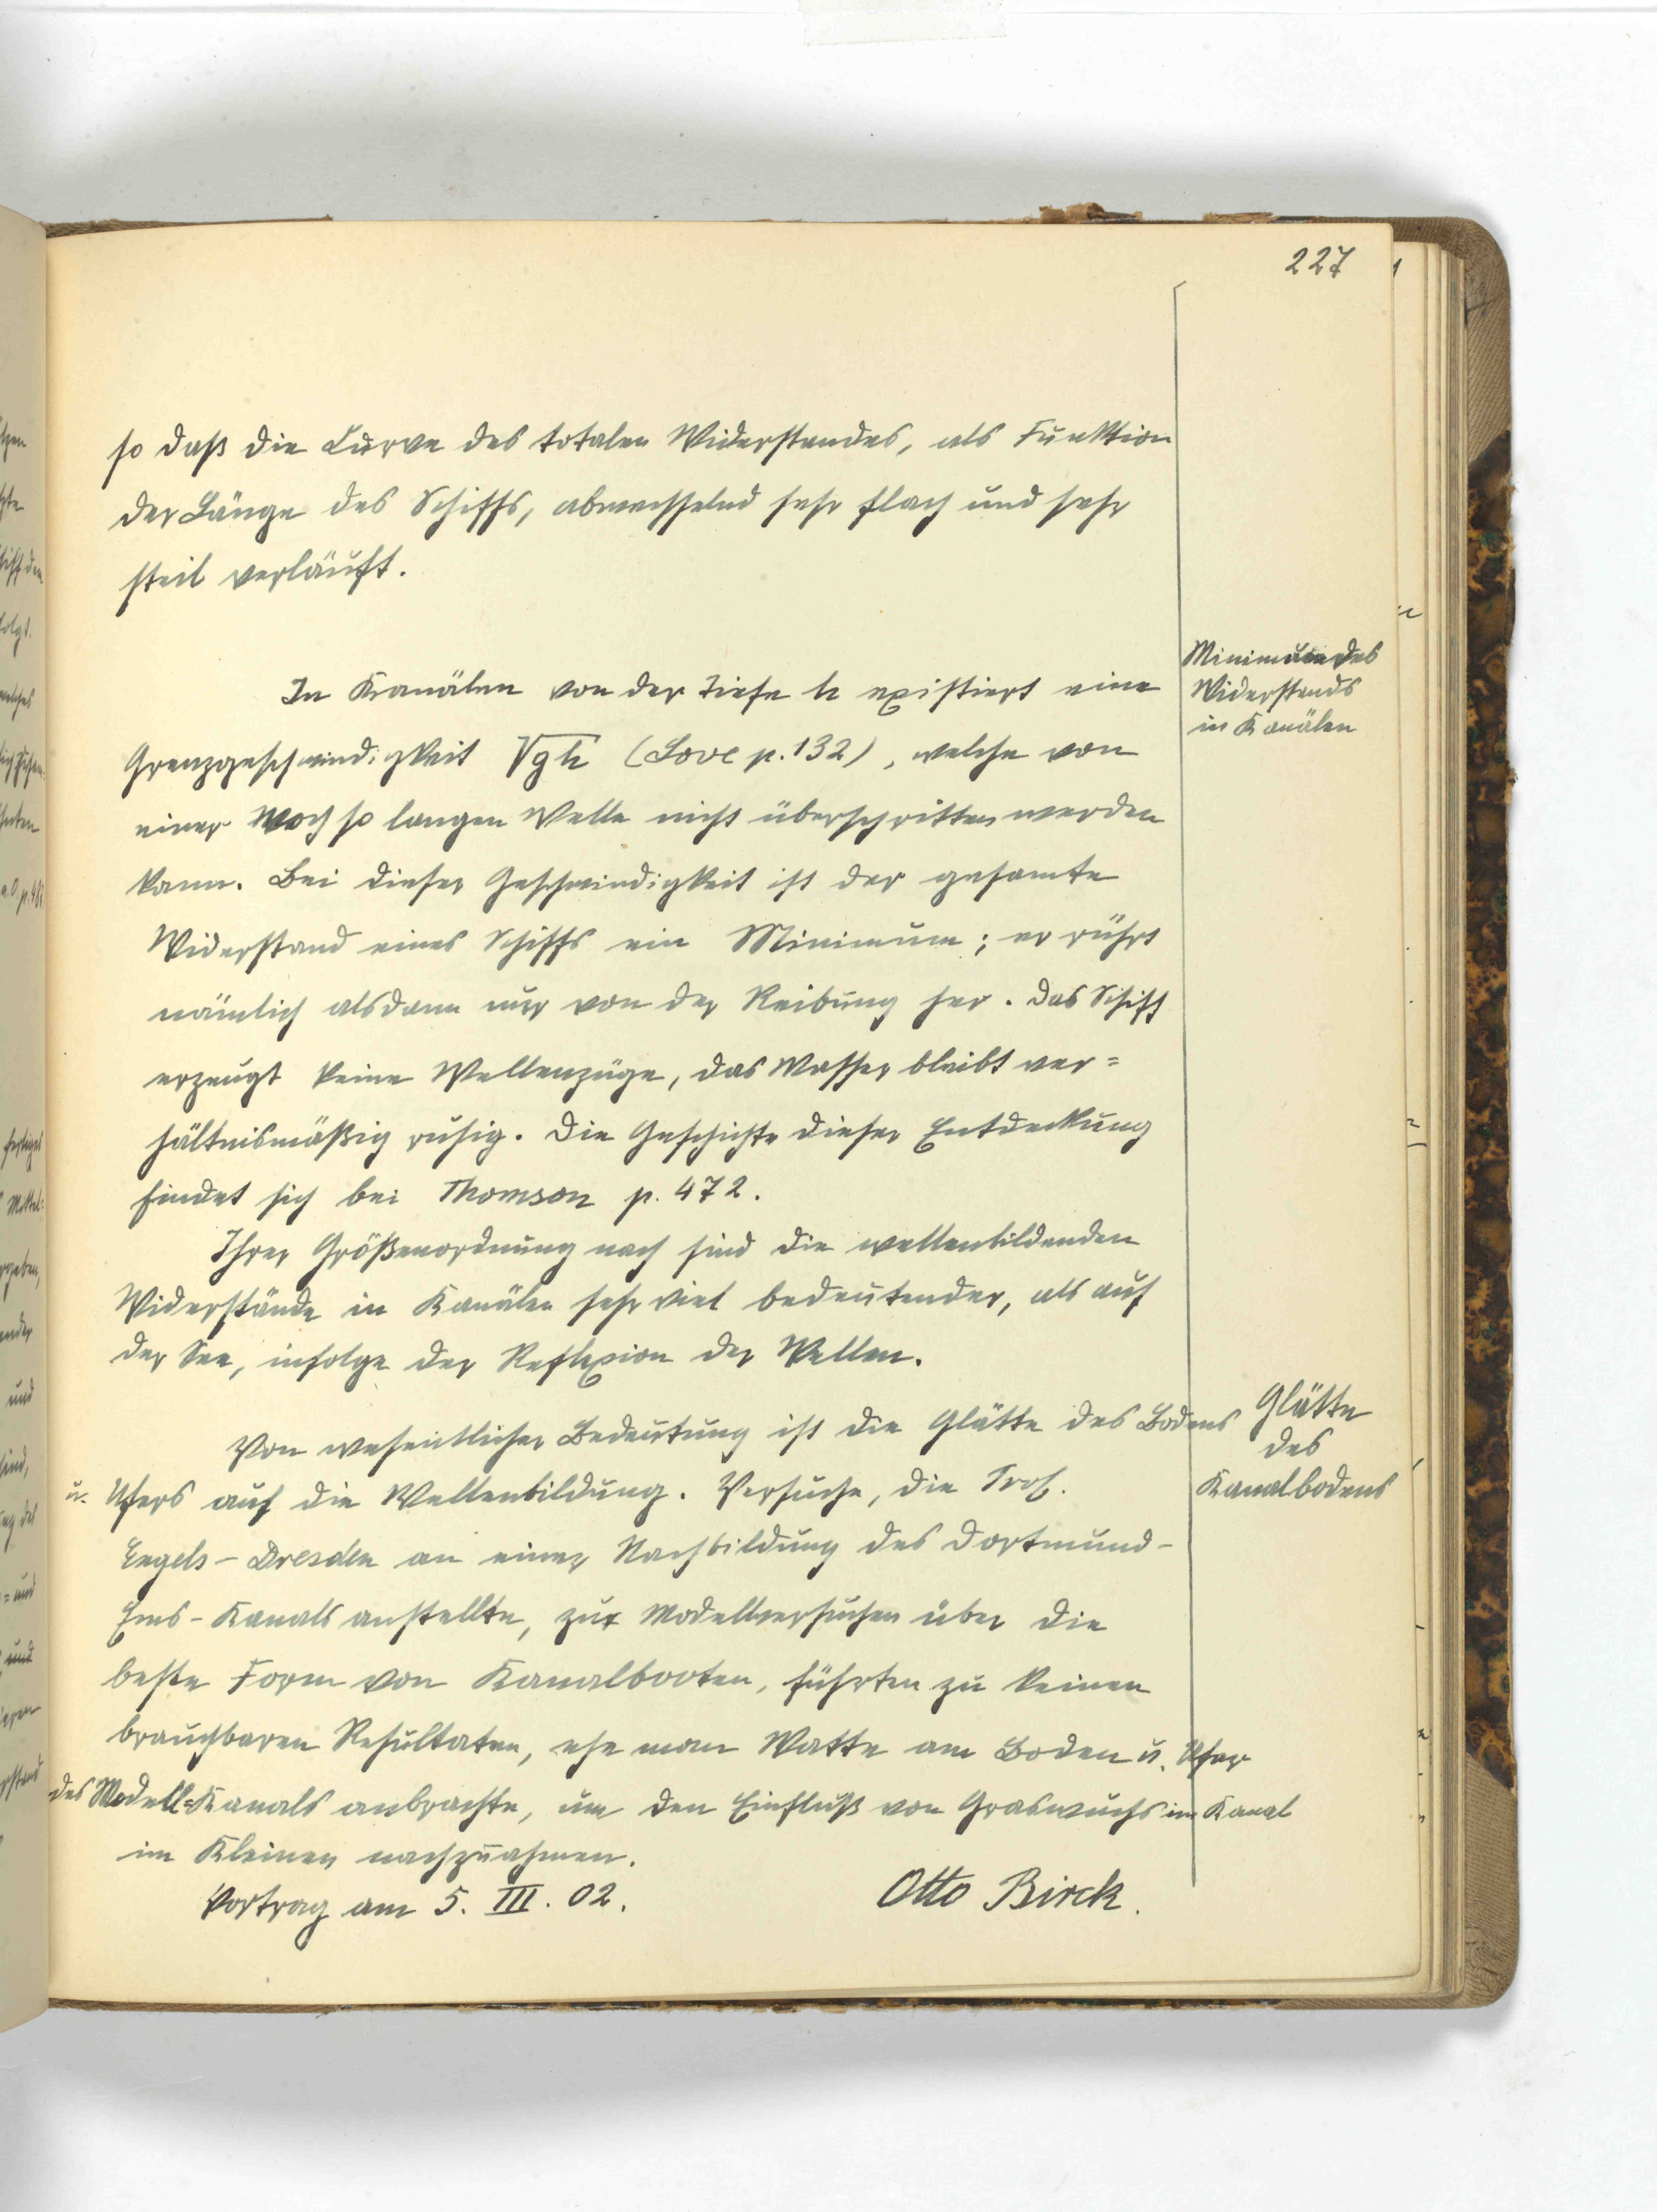 227
so daß die Curve des totalen Widerstandes, als Funktion
der Länge des Schiffs, abwechselnd sehr flach und sehr
steil verläuft.
Minimum des
Widerstands
in Kanälen
In Kanälen von der Tiefe h existiert eine
Grenzgeschwindigkeit √gh (Love p. 132), welche von
einer noch so langen Welle nicht überschritten werden
kann. Bei dieser Geschwindigkeit ist der gesamte
Widerstand eines Schiffs ein Minimum; er rührt
nämlich alsdann nur von der Reibung her. Das Schiff
erzeugt keine Wellenzüge, das Wasser bleibt ver=
hältnismäßig ruhig. Die Geschichte dieser Entdeckung
findet sich bei Thomson p. 472.
Ihrer Größenordnung nach sind die wellenbildenden
Widerstände in Kanälen sehr viel bedeutender, als auf
der See, infolge der Reflexion der Wellen.
Glätte
des
Kanalbodens
Von wesentlicher Bedeutung ist die Glätte des Bodens
u. Ufers auf die Wellenbildung. Versuche, die Prof.
Engels - Dresden an einer Nachbildung des Dortmund-
Ems-Kanals anstellte, zur Modellversuchen über die
beste Form von Kanalbooten, führten zu keinen
brauchbaren Resultaten, ehe man Watte am Boden u. Ufer
des Modell=Kanals anbrachte, um den Einfluß von Graswuchs im Kanal
im Kleinen nachzuahmen.
Vortrag am 5. III. 02.
Otto Birck.